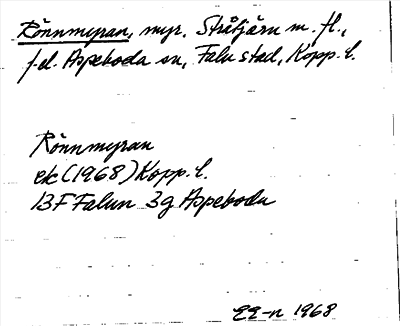 Rönnmyran, myr. Stråtjärn m. fl.,
f.d. Aspeboda sn, Falu stad, Kopp. l.
Rönnmyran
ek (1968) Kopp. l.
13F Falun 3g Aspeboda
1968